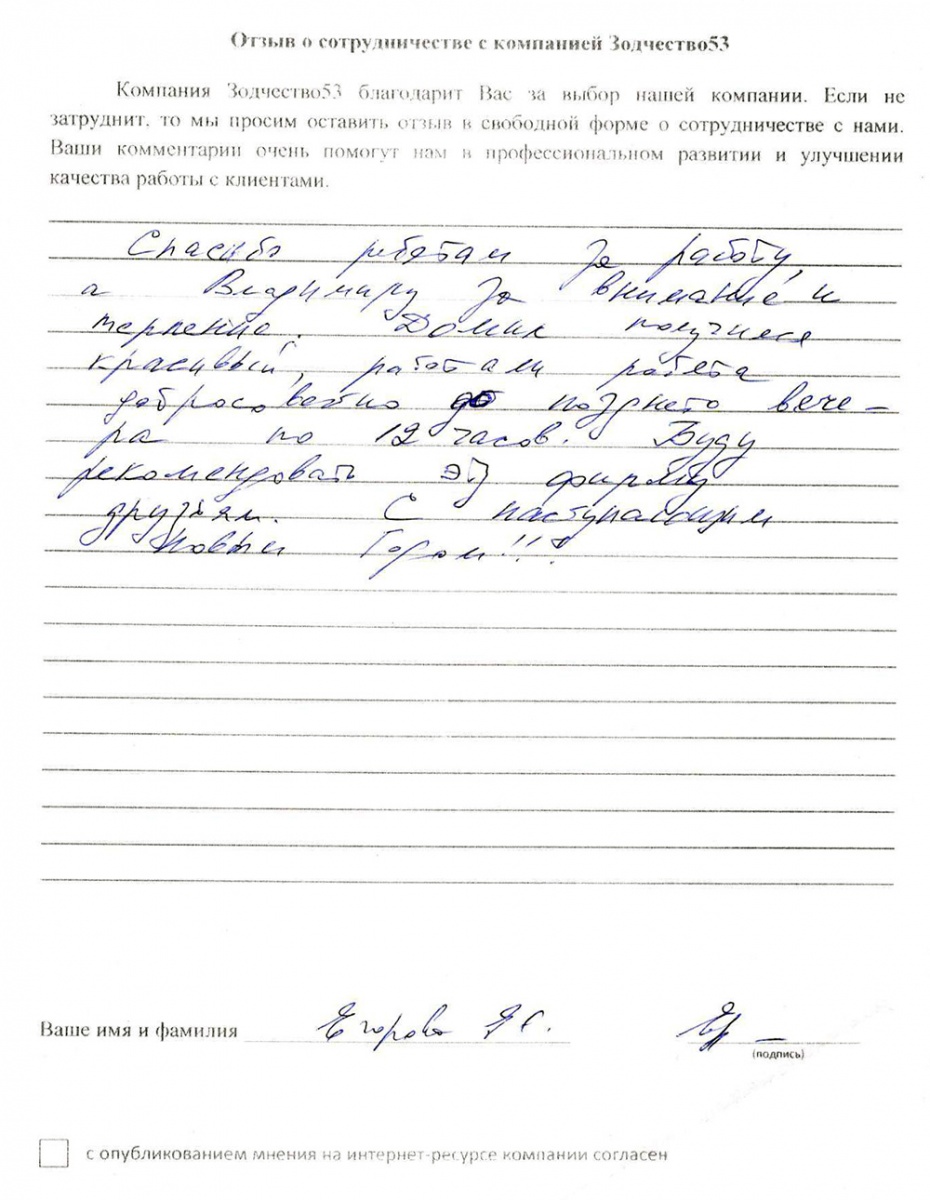 Отзыв о сотрудничестве с компанией Зодчество53
Компания Зодчество53 благодарит Вас за выбор нашей компании. Если не
затруднит, то мы просим оставить отзыв в свободной форме о сотрудничестве с нами.
Ваши комментарии очень помогут нам в профессиональном развитии и улучшении
качества работы с клиентами.
Спасибо ребятам за работу,
а Владимиру за внимание и
терпение. Домик получился
красивый, работали ребята
добросовестно до позднего вече-
ра по 12 часов. Буду
рекомендовать эту фирму
друзьям. С наступающим
Новым Годом!!!
Ваше имя и фамилия Егорова
(подпись)
с опубликованием мнения на интернет-ресурсе компании согласен